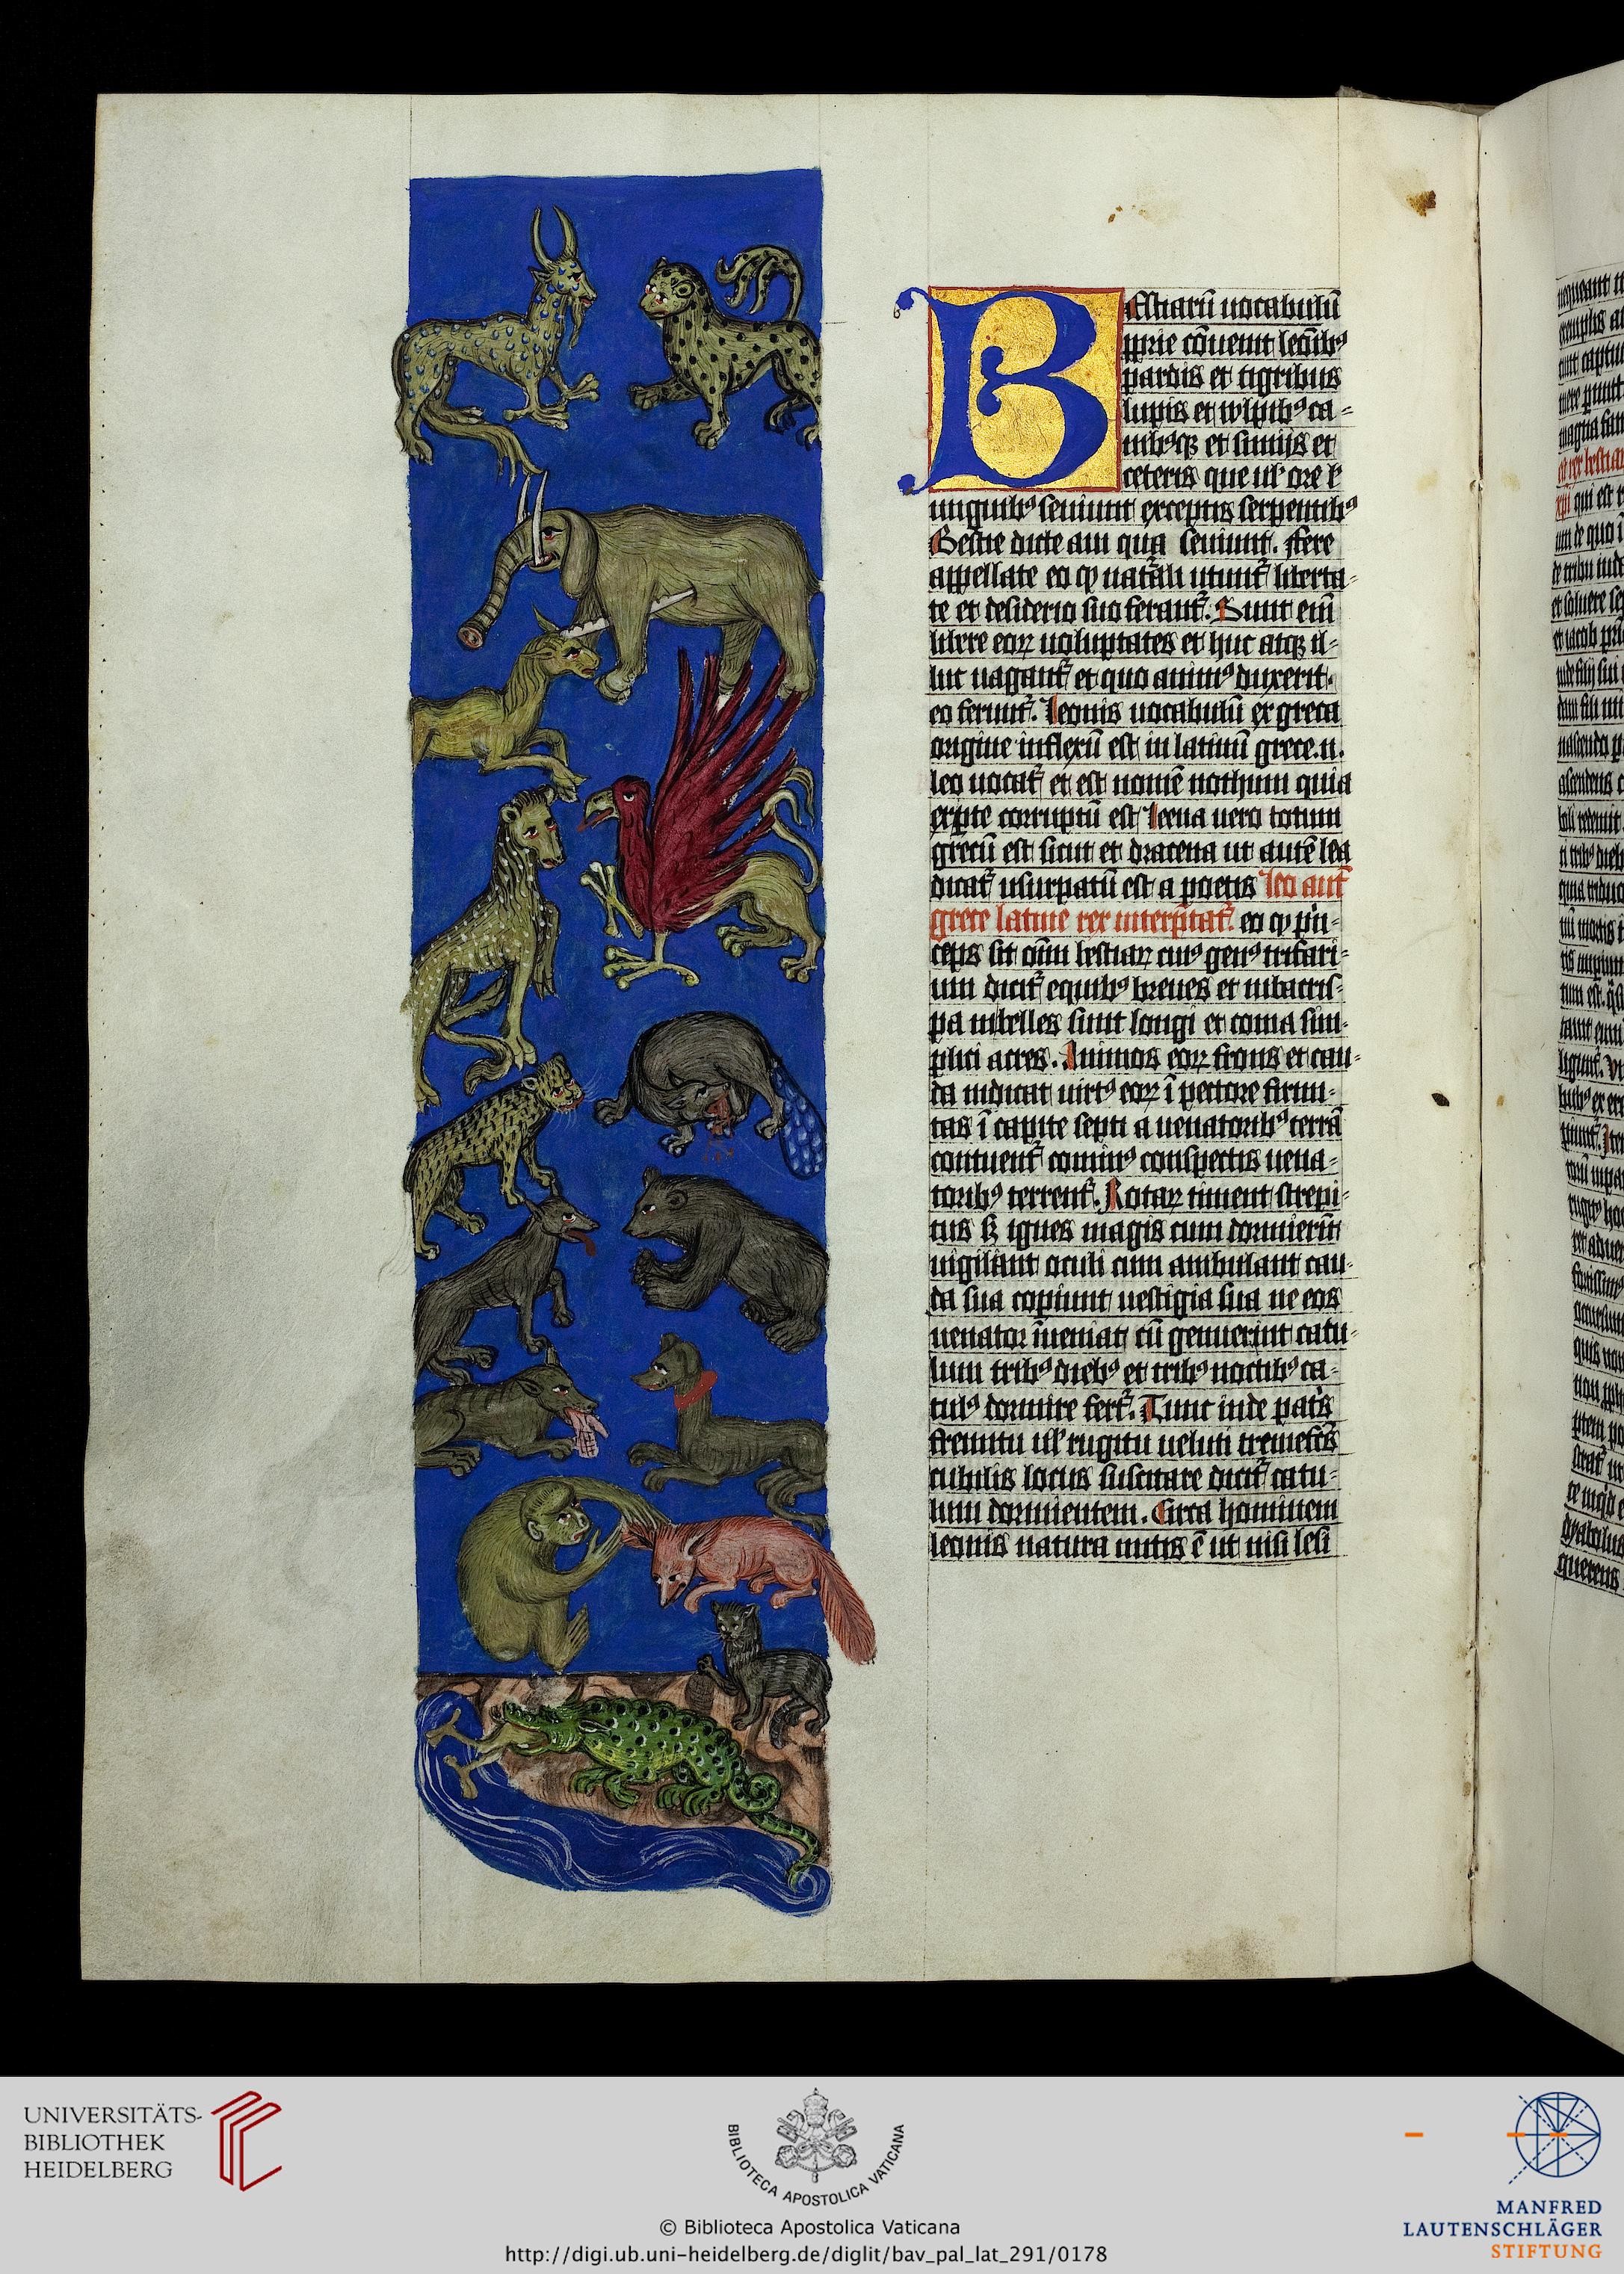 BEstiarū uocabulū
ꝓprie cōuenit leōibꝰ
pardis et tigribus
lupis et wlpibꝰ ca-
nibꝰqꝫ et simijs et
ceteris que ul' ore l'
unguibꝰ seuiunt exceptis serpentibꝰ
Bestie dicte aūt qua seuiunt. ffere
appellate eo ꝙ nat̄ali utunt̄ liberta-
te et desiderio suo ferant̄. Sunt enī
libere eoꝝ uoluptates et huc atqꝫ il-
luc uagant̄ et quo animꝰ duxerit.
eo ferunt̄. Leonis uocabulū ex greca
origine inflexū est in latinū grece.n.
leo uocat̄ et est nomē nothum quia
ex ꝑte corruptū est Leena uero totum
grecū est sicut et dracena ut autē lea
dicat̄ usurpatū est a poetis Leo aut̄
grece latine rex interp̄tat̄. eo ꝙ p̄n-
ceps sit om̄ī bestiaꝝ cuiꝰ genꝰ trifari-
um dicit̄ equibꝰ breues et iuba cris-
pa inbelles sunt longi et coma sim-
plici acres. Animos eoꝝ frons et cau-
da indicat uirtꝰ eoꝝ ī pectore firmi-
tas ī capite septi a uenatoribꝰ terrā
contuent̄ cominꝰ conspectis uena-
toribꝰ terrent̄. Rotaꝝ timent strepi-
tus sꝫ ignes magis cum dormierīt
uigilant oculi cum ambulant cau-
da sua copiunt uestigia sua ne eos
uenator īueniat cū genuerint catu-
lum tribꝰ diebꝰ et tribꝰ noctibꝰ ca-
tulꝰ dormire fert̄. Tunc inde pat̄s
fremitu ul' rugitu uelut tremefc̄s
cubilis locus suscitare dicit̄ catu-
lum dormientem. Circa hominem
leonis natura mitis ē ut nisi lesi
UNIVERSITÄTS-
BIBLIOTHEK
HEIDELBERG
BIBLIOTECA APOSTOLICA VATICANA
© Biblioteca Apostolica Vaticana
http://digi.ub.uni-heidelberg.de/diglit/bav_pal_lat_291/0178
MANFRED
LAUTENSCHLÄGER
STIFTUNG